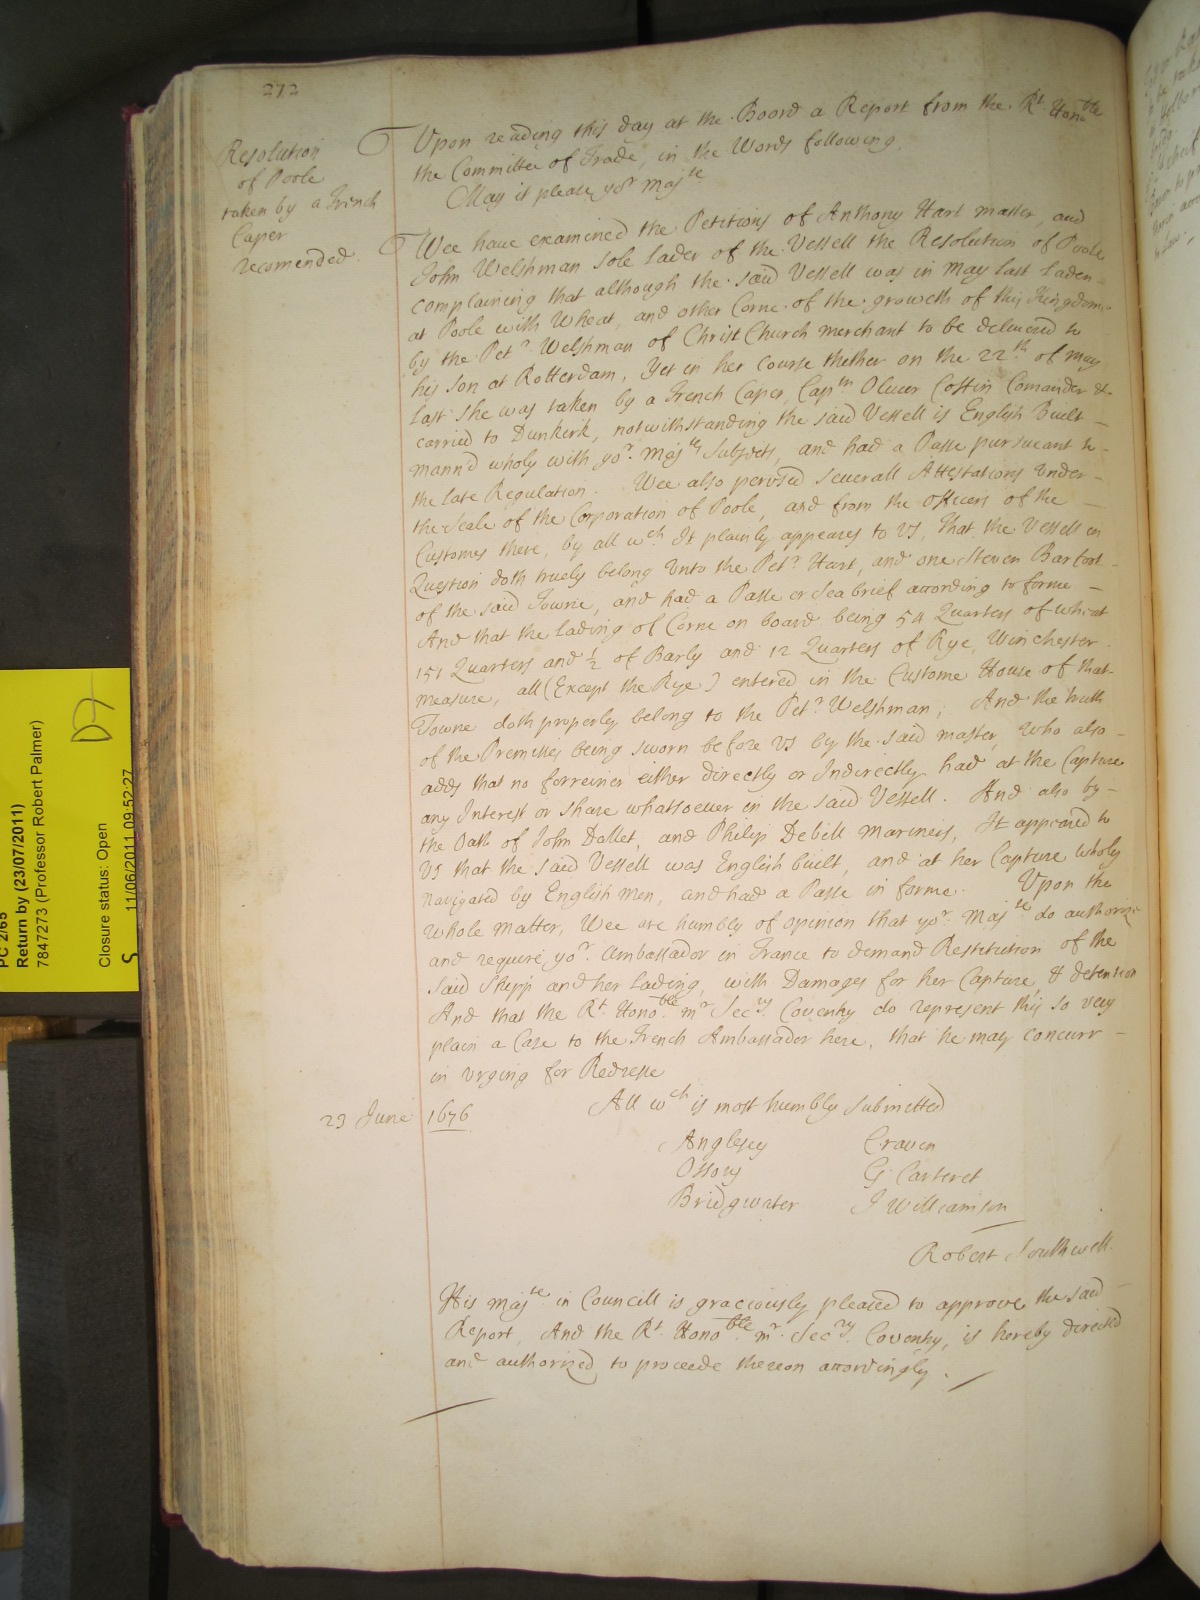 272
Resolution
of Poole
taken by a French
Caper
recomended.
Upon reading this day at the Board a Report from the Rt. Honoble
the Committee of Trade, in the Words following.
May it please yor Majte
Wee have examined the Petitions of Anthony Hart master, and
John Welshman sole lader of the Vessell the Resolution of Poole
complaining that although the said Vessell was in May last laden
at Poole with Wheat, and other Corne of the growth of this Kingdome
by the Petr. Welshman of Christ Church merchant to be delivered to
his son at Rotterdam, Yet in her course thether on the 22th. of May
last she was taken by a French Caper, Captn Oliver Costin Comander &
carried to Dunkerk, notwithstanding the said Vessell is English Built
mann'd wholy with yor. Majtes Subjects, and had a Passe pursueant to
the late Regulation. Wee also perused severall Attestations under
the Seale of the Corporation of Poole, and from the Officers of the
Customes there, by all wch It plainly appeares to us, That the Vessell in
Question doth truely belong unto the Petr. Hart, and one Steven Barfoot
of the said Towne, and had a Passe or Sea brief according to forme
And that the lading of Corne on board being 54 Quarters of wheat
151 Quarters and ½ of Barly and 12 Quarters of Rye, Winchester
measure, all (Except the Rye) entered in the Custome House of that
Towne doth properly belong to the Petr. Welshman; And the truth
of the Premisses being sworn before us by the said master, who also
adds that no forreiner either directly or Indirectly had at the Capture
any Interest or share whatsoever in the said Vessell. And also by
the Oath of John Dallet, and Philip Debell Mariners, It appeared to
us that the said Vessell was English built, and at her Capture wholy
navigated by English men, and had a Passe in forme. Upon the
whole matter, Wee are humbly of opinion that yor. Majte do authorize
and require, yor. Ambassador in France to demand Restitution of the
said Shipp and her lading, with Damages for her Capture, & detention
And that the Rt. Honoble mr Secry. Coventry do represent this so very
plain a Case to the French Ambassador here, that he may concurr
in urging for Redresse
All wch is most humbly submitted
23 June 1676
Anglesey Craven
Ossory G Carteret
Bridgwater J Williamson
Robert Southwell.
His Majte in Councill is graciously pleased to approve the said
Report, And the Rt. Honoble mr. Secry Coventry, is hereby directed
and authorized to proceede thereon accordingly.
PC 2/65
Return by (23/07/2011)
7847273 (Professor Robert Palmer)
Closure status: Open
S 11/06/2011 09:52:27